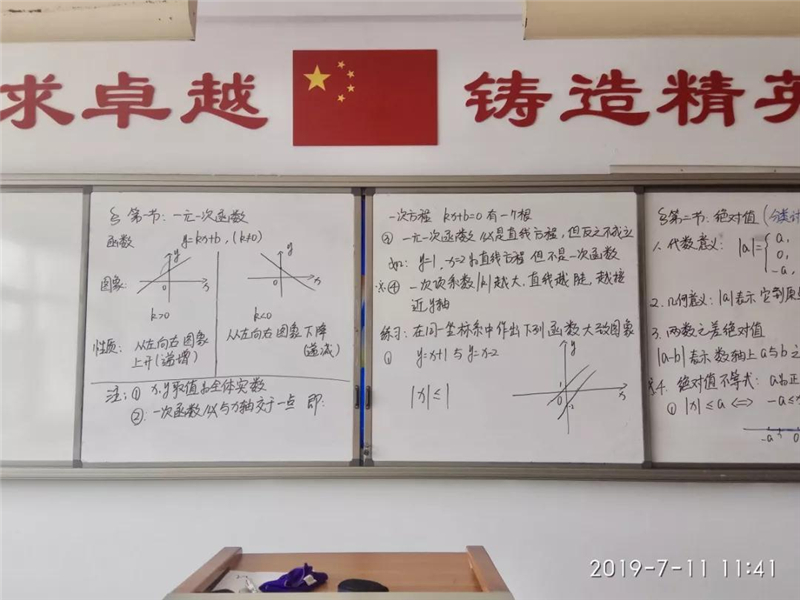 求卓越 铸造精英
§ 第一节: 一元一次函数
函数 y=kx+b, (k≠0)
图象:
y
x
0
k>0
y
x
0
k<0
性质: 从左向右图象
上升(递增)
从左向右图象下降
(递减)
注: ① x.y取值为全体实数
②. 一次函数必与x轴交于一点 即:
一次方程 kx+b=0 有一个根
③ 一元一次函数必是直线方程, 但反之不成立
如: y=1, x=2为直线方程 但不是一次函数
※④ 一次项系数|k|越大, 直线越陡, 越接
近y轴
练习: 在同一坐标系中作出下列函数大致图象
① y=x+1 与 y=x-2
|x|≤1
y
x
1
0
-2
§第二节: 绝对值 (分类讨
1. 代数意义: |a|={ a,
0,
-a,
2. 几何意义: |a|表示它到原
3. 两数之差绝对值
|a-b|表示数轴上a与b之
※4. 绝对值不等式: a为正
① |x|≤a ⟺ -a≤x
-a x 0
2019-7-11 11:41